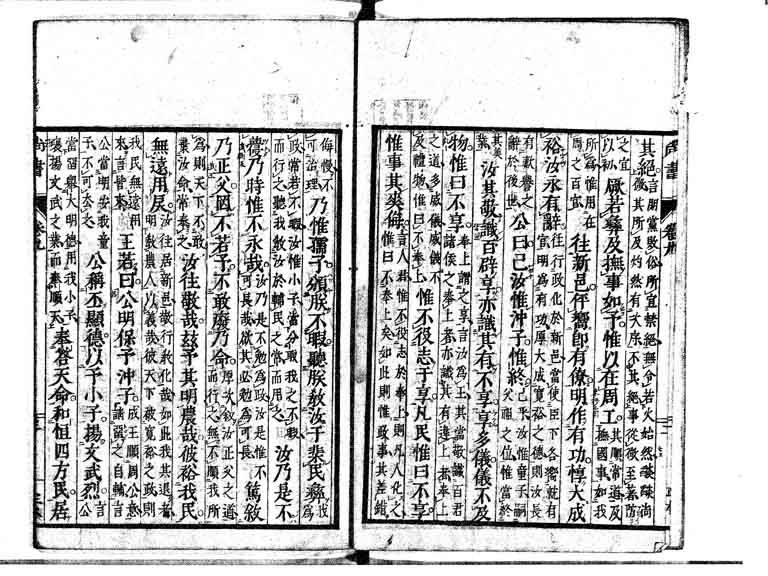 尚書 卷九
其絕言朋黨敗俗所宜禁絕無令若火始然燄燄尚微其所及灼然有次序不其絕事從微至著防
之宜以初厥若彝及撫事如予惟以在周工其順常道及撫國事如我
所為惟用在周之百官往新邑伻嚮即有僚明作有功惇大成
裕汝永有辭往行政化於新邑當使臣下各嚮就有官明為有功厚大成寬裕之德則汝長
有歎譽之辭於後世公曰已汝惟沖子惟終已乎汝惟童子嗣父祖之位惟當終
其美業汝其敬識百辟享亦識其有不享享多儀儀不及
物惟曰不享奉上謂之享言汝為王其當敬識百君諸侯之奉上者亦識其有違上者奉上
之道多威儀威儀不及禮物惟曰不奉上惟不役志于享凡民惟曰不享
惟事其爽侮言人君惟不役志於奉上則凡人化之惟曰不奉上矣如此則惟政事其差錯
侮慢不可治理乃惟孺子頒朕不暇聽朕教汝于棐民彝我為
政常若不暇汝惟小子當分取我之不暇而行之聽我教汝於輔民之常而用之汝乃是不
蘉乃時惟不永哉汝乃是不勉為政汝是惟不可長哉欲其必勉為可長篤敘
乃正父罔不若予不敢廢乃命厚次敘汝正父之道而行之無不順我所
為則天下不敢棄汝命常奉之汝往敬哉茲予其明農哉彼裕我民
無遠用戾汝往居新邑敬行教化哉如此我其退老明教農人以義哉彼天下被寬裕之政則
我民無遠用來言皆來王若曰公明保予沖子成王順周公意請留之自輔言
公當明安我童子不可去之公稱丕顯德以予小子揚文武烈言公
當留舉大明德用我小子褒揚文武之業而奉順天奉答天命和恒四方民居
尚書 卷九